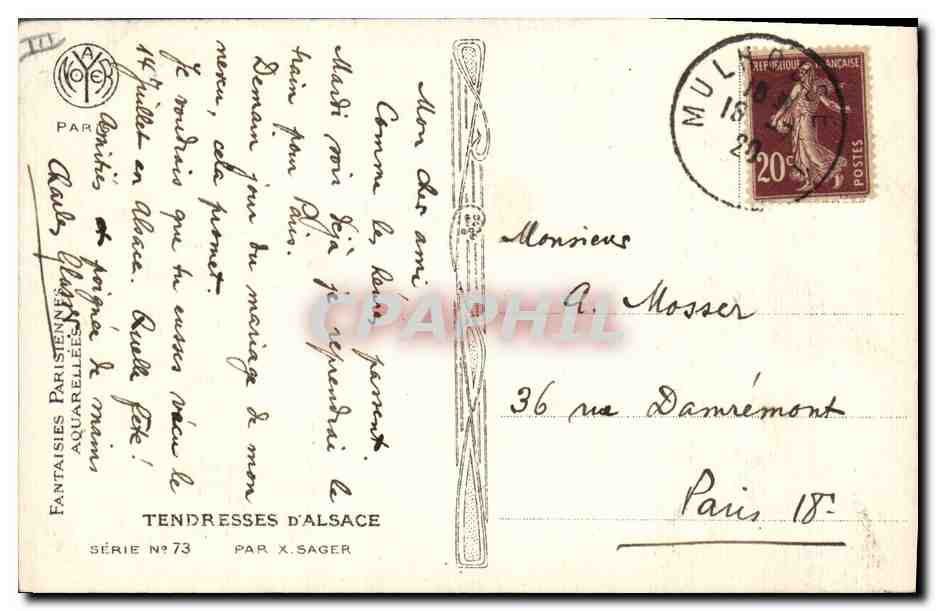 Mon cher ami
Comme les heures passent.
Mardi soir déjà je reprendrai le
train pour Paris.
Demain jour du mariage de mon
neveu, cela promet.
Je voudrais que tu eusses vécu le
14 Juillet en Alsace. Quelle fête!
Amitiés et poignée de mains
Charles
PARIS
FANTAISIES PARISIENNES
AQUARELLÉES
TENDRESSES D'ALSACE
SÉRIE No 73 PAR X. SAGER
MULHOUSE
20
RÉPUBLIQUE FRANÇAISE
20c
POSTES
Monsieur
A. Mosser
36 rue Damrémont
Paris 18e
CPAPHIL